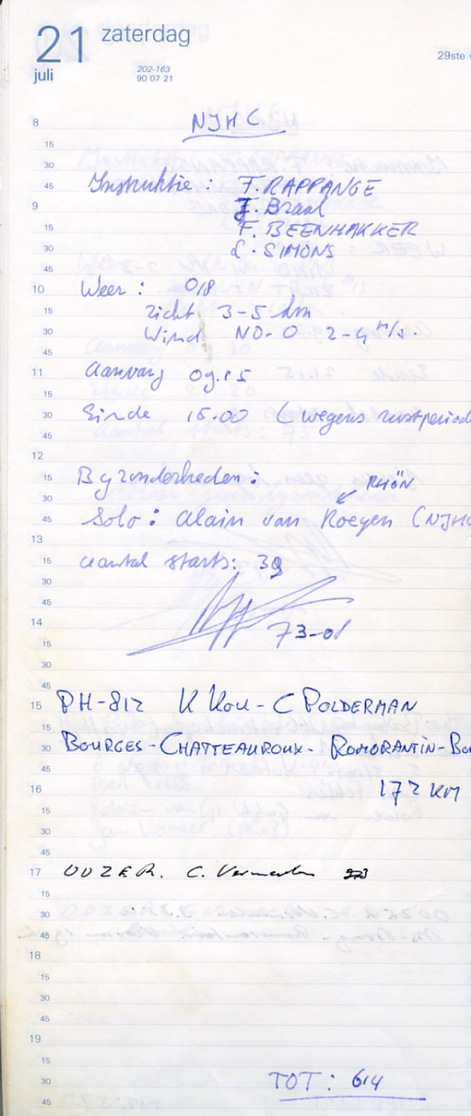 21 zaterdag
juli
202-163
90 07 21
29ste
8
NJHC
15
30
45 Instruktie : F. RAPPANGE
9 F. Braal
15 F. BEENHAKKER
30 L. SIMONS
45
10 Weer : 0/8
15 zicht 3-5 km
30 Wind NO-O 2-4 M/s.
45
11 aanvang 09.15
15
30 Einde 15.00 (wegens rustperiod
45
12
15 Byzonderheden :
30 RHÖN
45 Solo : Alain van Roegen (NJHC
13
15 aantal starts: 39
30
45
14 73-01
15
30
45
15 PH-812 K Kou - C POLDERMAN
15
30 BOURGES - CHATTEAUROUX - ROMORANTIN - BO
45
16 172 KM
15
30
45
17 OOZER. C.
15
30
45
18
15
30
45
19
15
30 TOT : 614
45